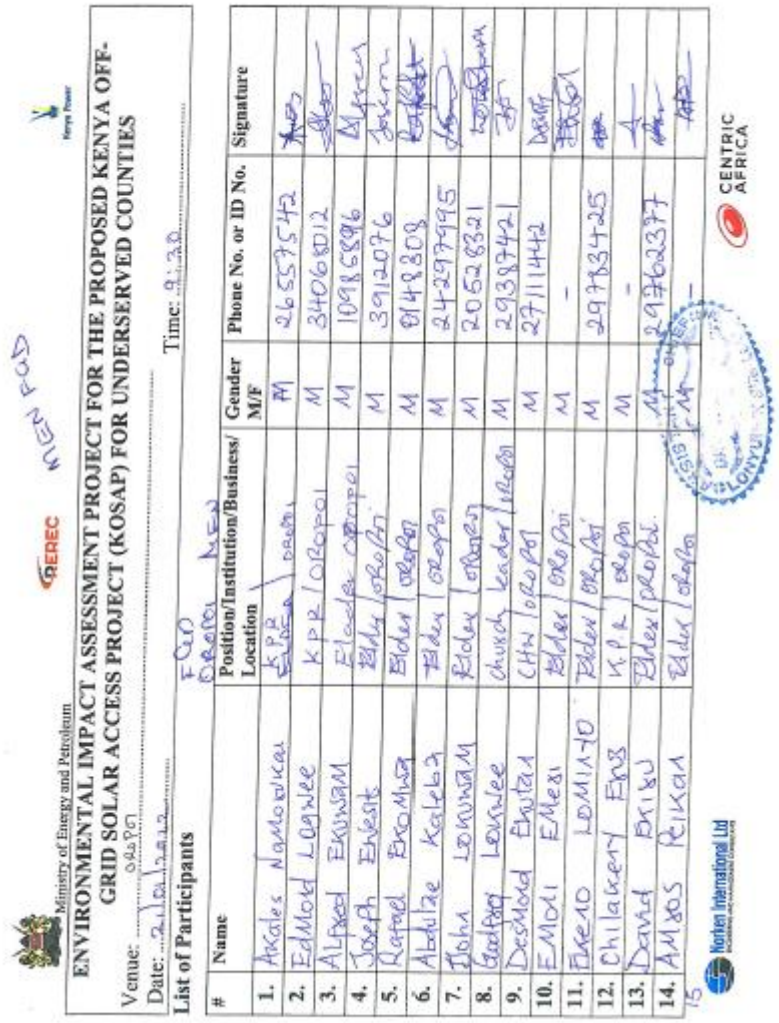 Ministry of Energy and Petroleum
REREC
MEN FGD
Kenya Power
ENVIRONMENTAL IMPACT ASSESSMENT PROJECT FOR THE PROPOSED KENYA OFF-
GRID SOLAR ACCESS PROJECT (KOSAP) FOR UNDERSERVED COUNTIES
Venue: OROPOI
Date: Time: 9:30
List of Participants
FGD
OROPOI MEN
# Name Position/Institution/Business/ Location Gender M/F Phone No. or ID No. Signature
1. Akoles KPR OROPOI M 26557542
2. Edmord Logwee KPR / OROPOI M 34068012
3. Alfred Ekuwam OROPOI M 10985896
4. Joseph Ekeste Elder / OROPOI M 3912076
5. Rafael Ekomwa Elder / OROPOI M 0148308
6. Abdulae Kaleba Elder / OROPOI M 24297995
7. John Lokuwam Elder / OROPOI M 20528321
8. Godfrey Lokwee Church Leader / OROPOI M 29387421
9. Desmord Ekutan CHW / OROPOI M 27111442
10. Emoli Emesi Elder / OROPOI M -
11. Ekeno Lominto Elder / OROPOI M 29783425
12. Chilakery K.P.R / OROPOI M -
13. David Ekisu Elder / OROPOI M 29762377
14. Amsos Peikan Elder / OROPOI M -
15
Norken International Ltd
CENTRIC
AFRICA